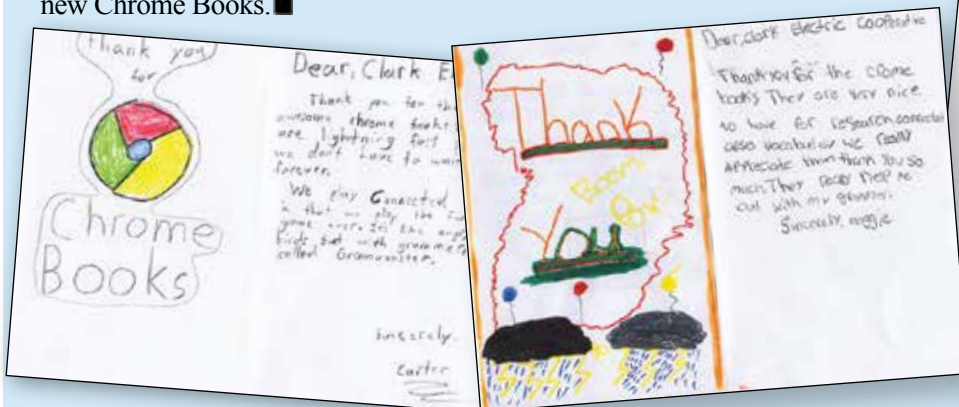 new Chrome Books.■
(thank you)
for
Chrome
Books
Dear, Clark E
Thank you for the
awesome chrome books
are lightning fast
we don't have to wait
forever.
We play Connected
is that we play the
game over. It's like angry
birds but with grammer
called
Sincerely,
Carter
Thank
Boom
You
Dear, clark electric cooperative
Thank you for the crome
books They are very nice
to have for research, connected
also vocabular we really
appreciate them thank you so
much. They really help me
out with my grammar.
Sincerely, maggie